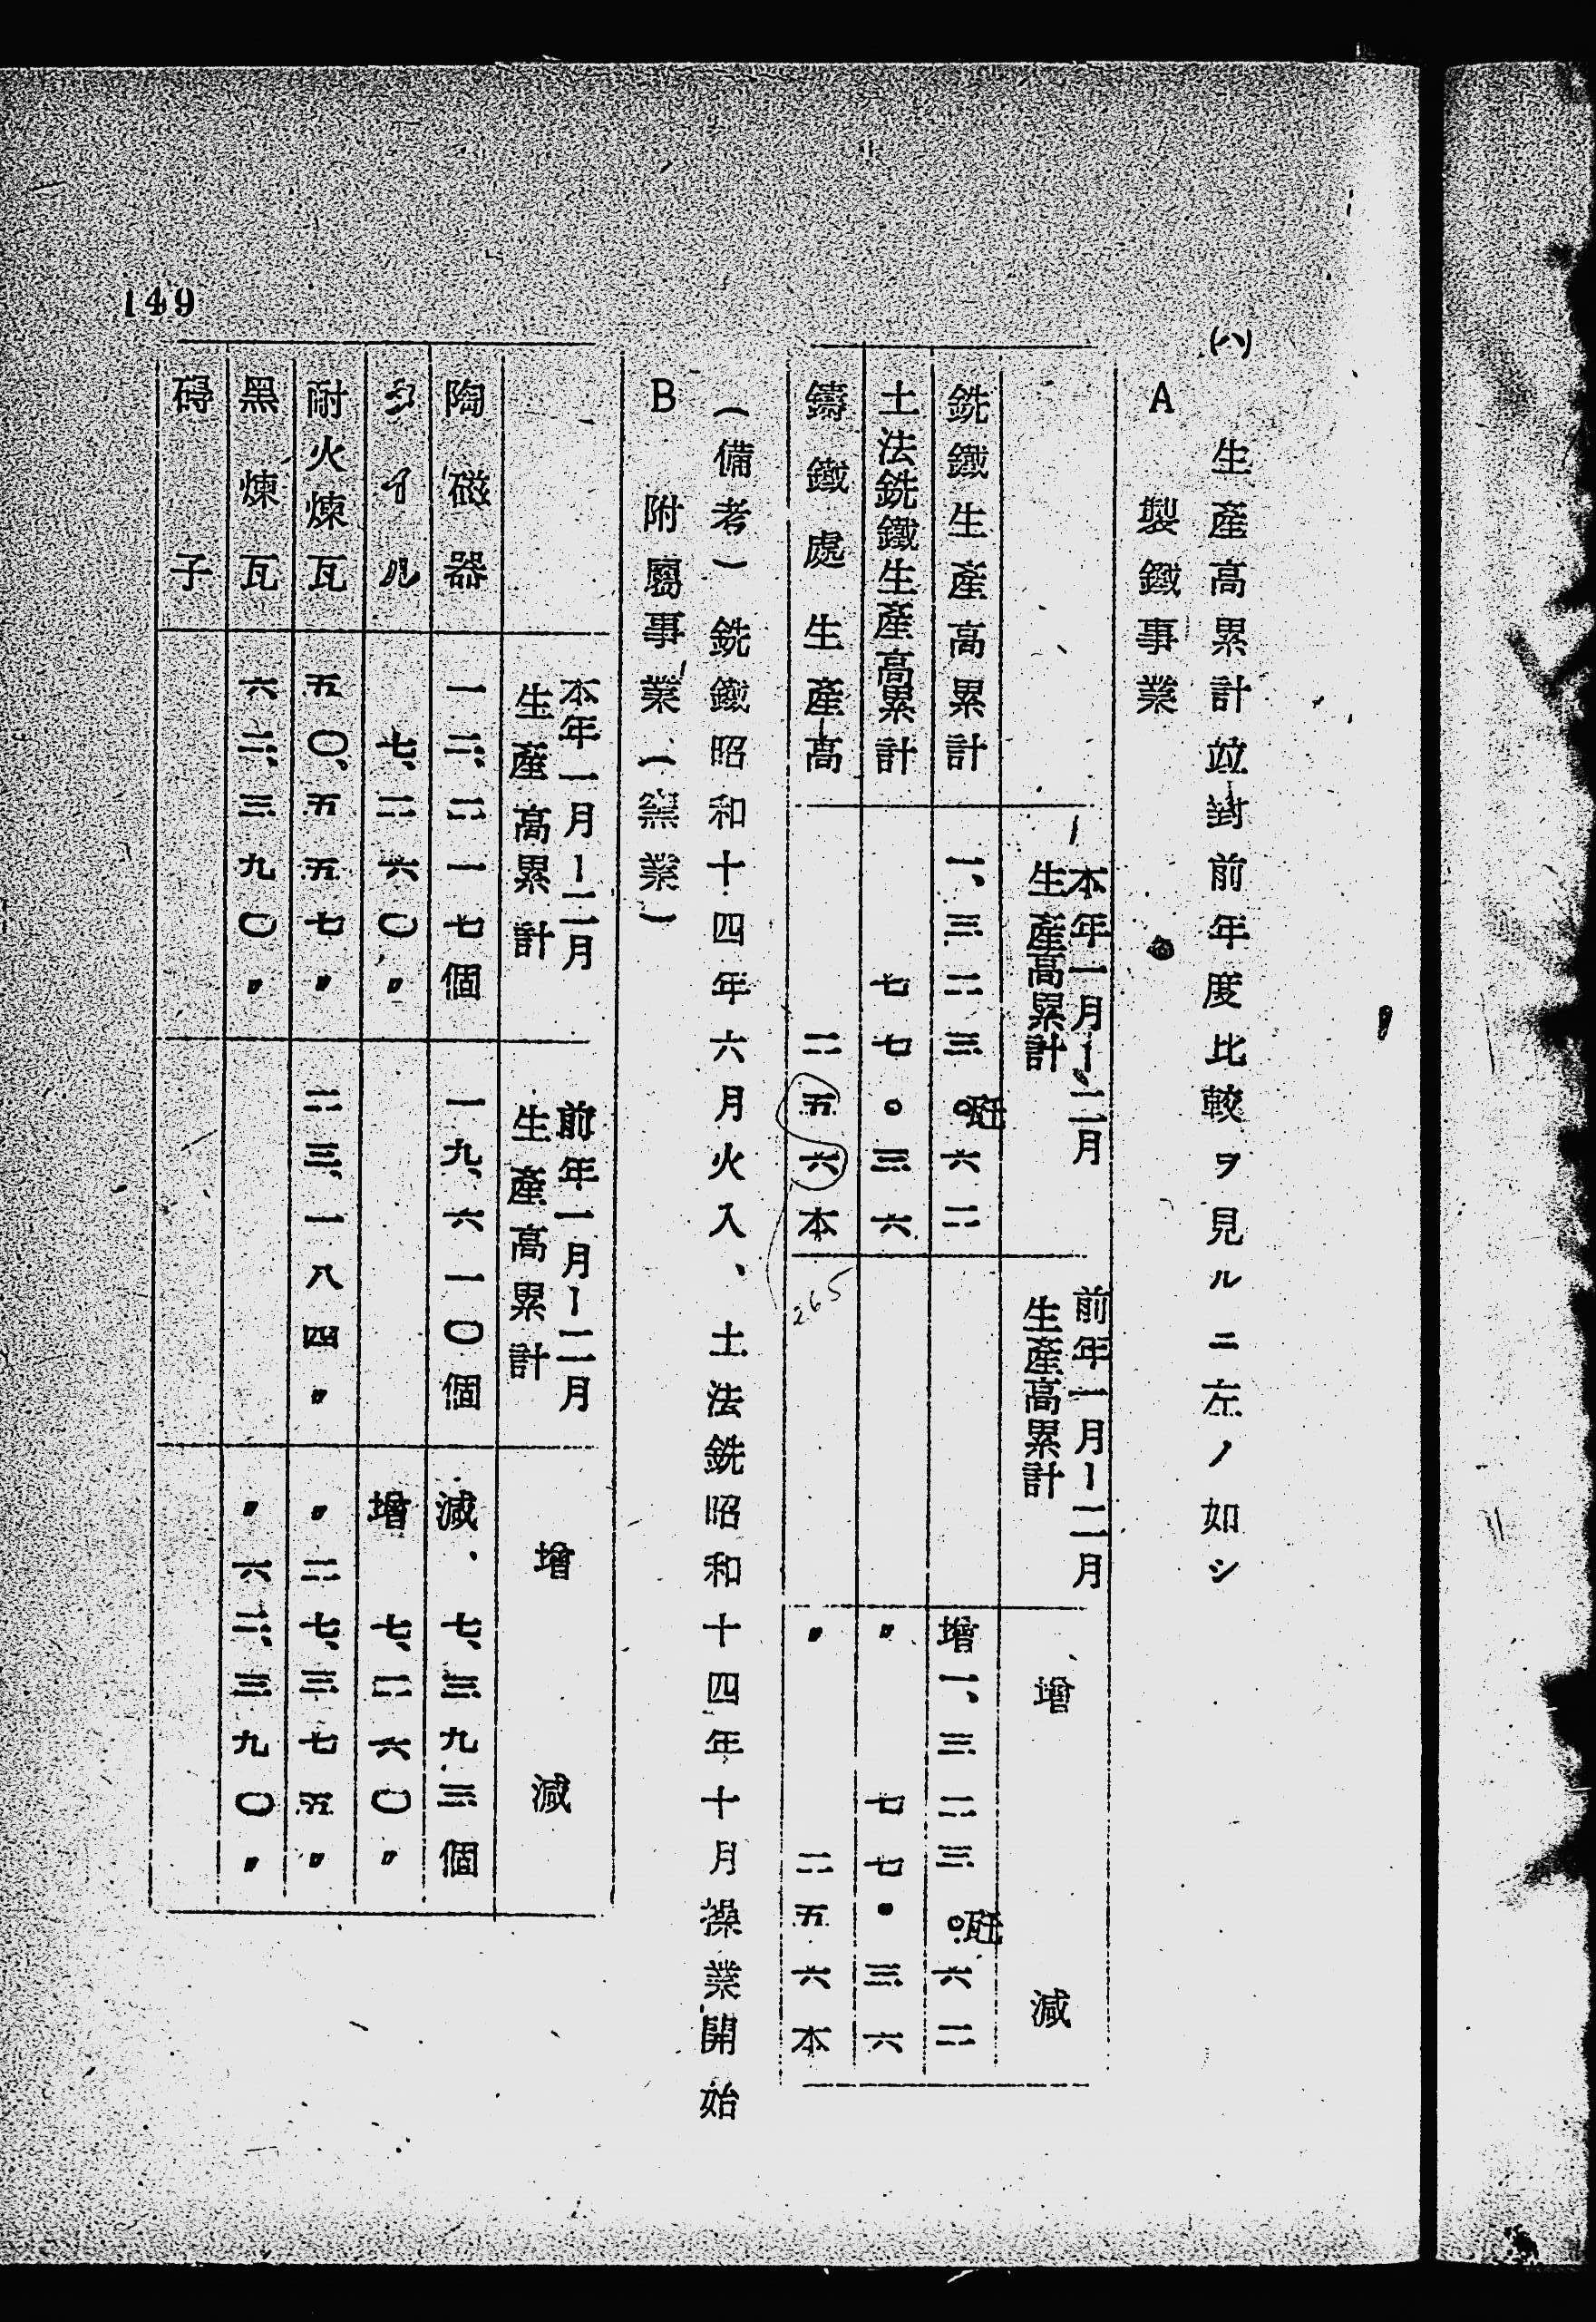 (ハ)　生產高累計竝封前年度比較ヲ見ルニ左ノ如シ
A　製鐵事業
本年一月ー二月
生產高累計
前年一月ー二月
生產高累計
增　減
銑鐵生產高累計　一、三二三。瓩六二　增一、三二三。瓩六二
土法銑鐵生產高累計　七七。三六　〃七七.三六
鑄鐵處生產高　二五六本　〃二五六本
265
(備考)銑鐵昭和十四年六月火入、土法銑昭和十四年十月操業開始
B　附屬事業、(窯業)
本年一月ー二月
生產高累計
前年一月ー二月
生產高累計
增　減
陶磁器　一二、二一七個　一九、六一〇個　減、七、三九三個
タイル　七、二六〇〃　增七、二六〇〃
耐火煉瓦　五〇、五五七〃　二三、一八四〃　〃二七、三七五〃
黑煉瓦　六二、三九〇〃　〃六二、三九〇〃
碍子
149